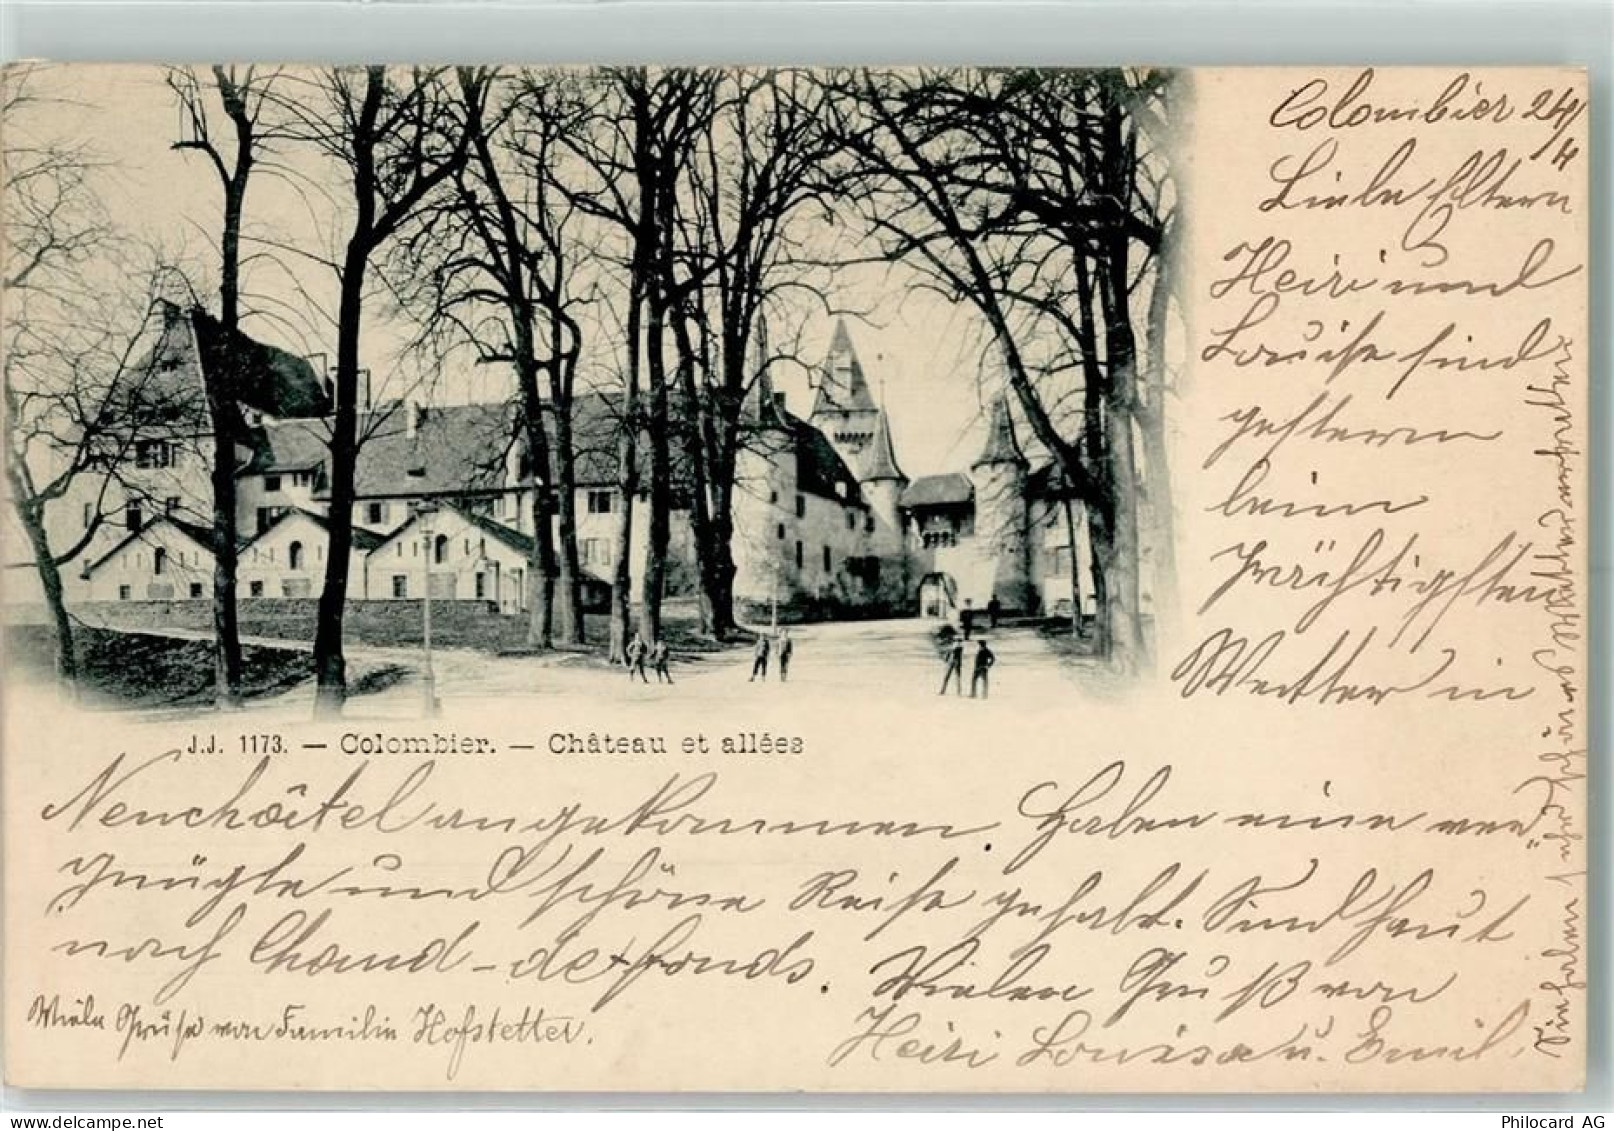 Colombier 24/
4
Liebe Eltern
Heiri und
Louise sind
gestern
beim
prächtigsten
Wetter in
J.J. 1173. — Colombier. — Château et allées
Neuchâtel angekommen. Haben eine ver„
gnügte und schöne Reise gehabt. Sind heut
nach Chaud-de-fonds. Vielen Gruß von
Heiri Louise u. Emil.
Viele Grüße von Familie Hofstetter.
Philocard AG